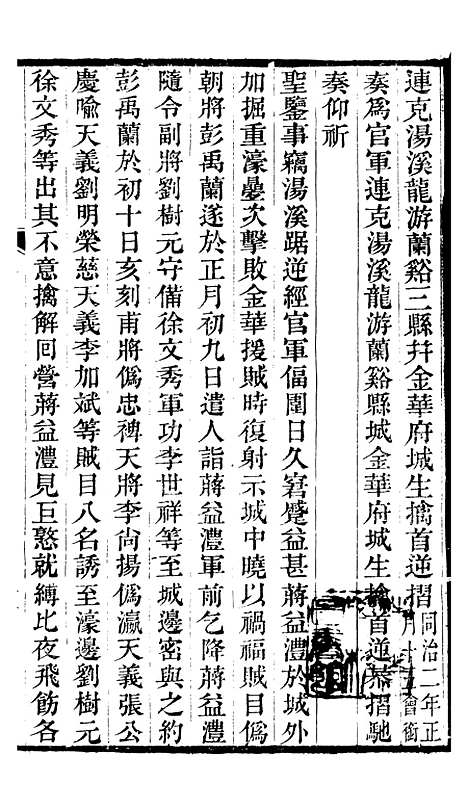 連克湯溪龍游蘭谿三縣幷金華府城生擒首逆摺同治二年正月十會銜
奏爲官軍連克湯溪龍游蘭谿縣城金華府城生擒首逆恭摺馳
奏仰祈
聖鑒事竊湯溪踞逆經官軍偪圍日久窘蹙益甚蔣益澧於城外
加掘重濠壘次擊敗金華援賊時復射示城中曉以禍福賊目僞
朝將彭禹蘭遂於正月初九日遣人詣蔣益澧軍前乞降蔣益澧
隨令副將劉樹元守備徐文秀軍功李世祥等至城邊密與之約
彭禹蘭於初十日亥刻甫將僞忠裨天將李尙揚僞瀛天義張公
慶喩天義劉明榮慈天義李加斌等賊目八名誘至濠邊劉樹元
徐文秀等出其不意擒解囘營蔣益澧見巨憝就縛比夜飛飭各